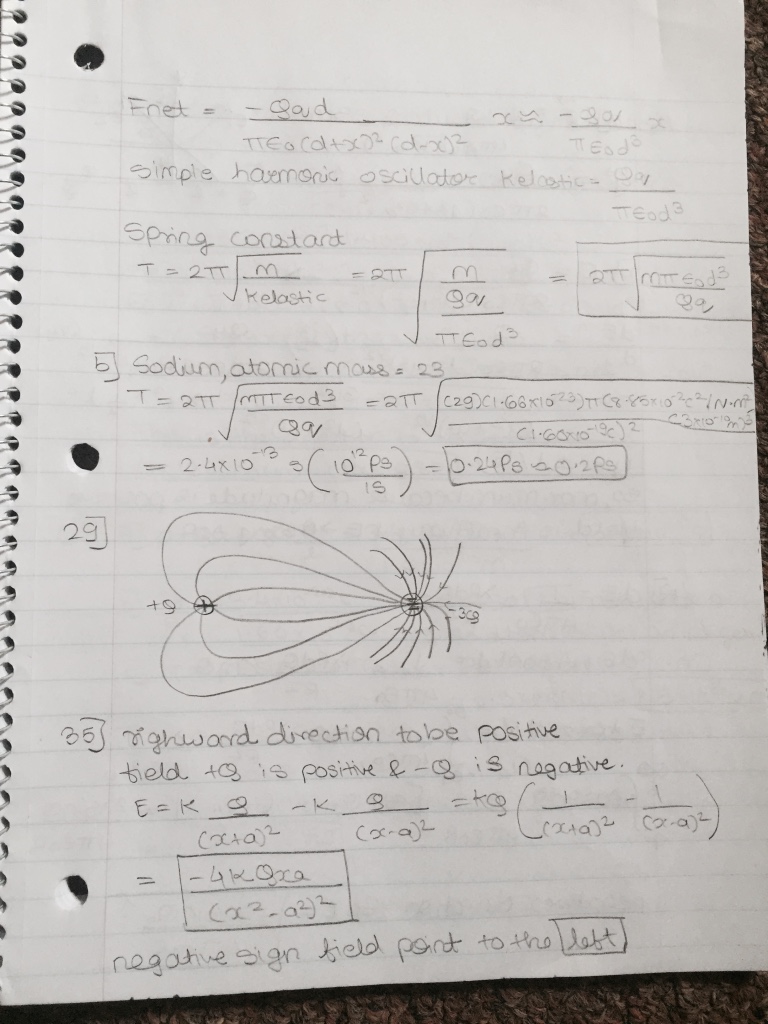 Fnet = -Qqd / πε₀(d+x)²(d-x)² x ≈ -Qq / πε₀d³ x
Simple harmonic oscillator Kelastic = Qq / πε₀d³
Spring constant
T = 2π √(m / Kelastic) = 2π √(m / (Qq / πε₀d³)) = 2π √(mπε₀d³ / Qq)
b] Sodium, atomic mass = 23
T = 2π √(mπε₀d³ / Qq) = 2π √((29)(1.66×10⁻²³)π(8.85×10⁻²C²/N·m²)(3×10⁻¹⁰m)³ / (1.60×10⁻¹⁹C)²)
= 2.4×10⁻¹³ s (10¹²Ps / 1S) = 0.24Ps ≈ 0.2Ps
29]
+Q + -3Q
35] righward direction to be positive
field +Q is positive & -Q is negative.
E = K Q/(x+a)² - K Q/(x-a)² = kQ (1/(x+a)² - 1/(x-a)²)
= -4KQxa / (x²-a²)²
negative sign field point to the left